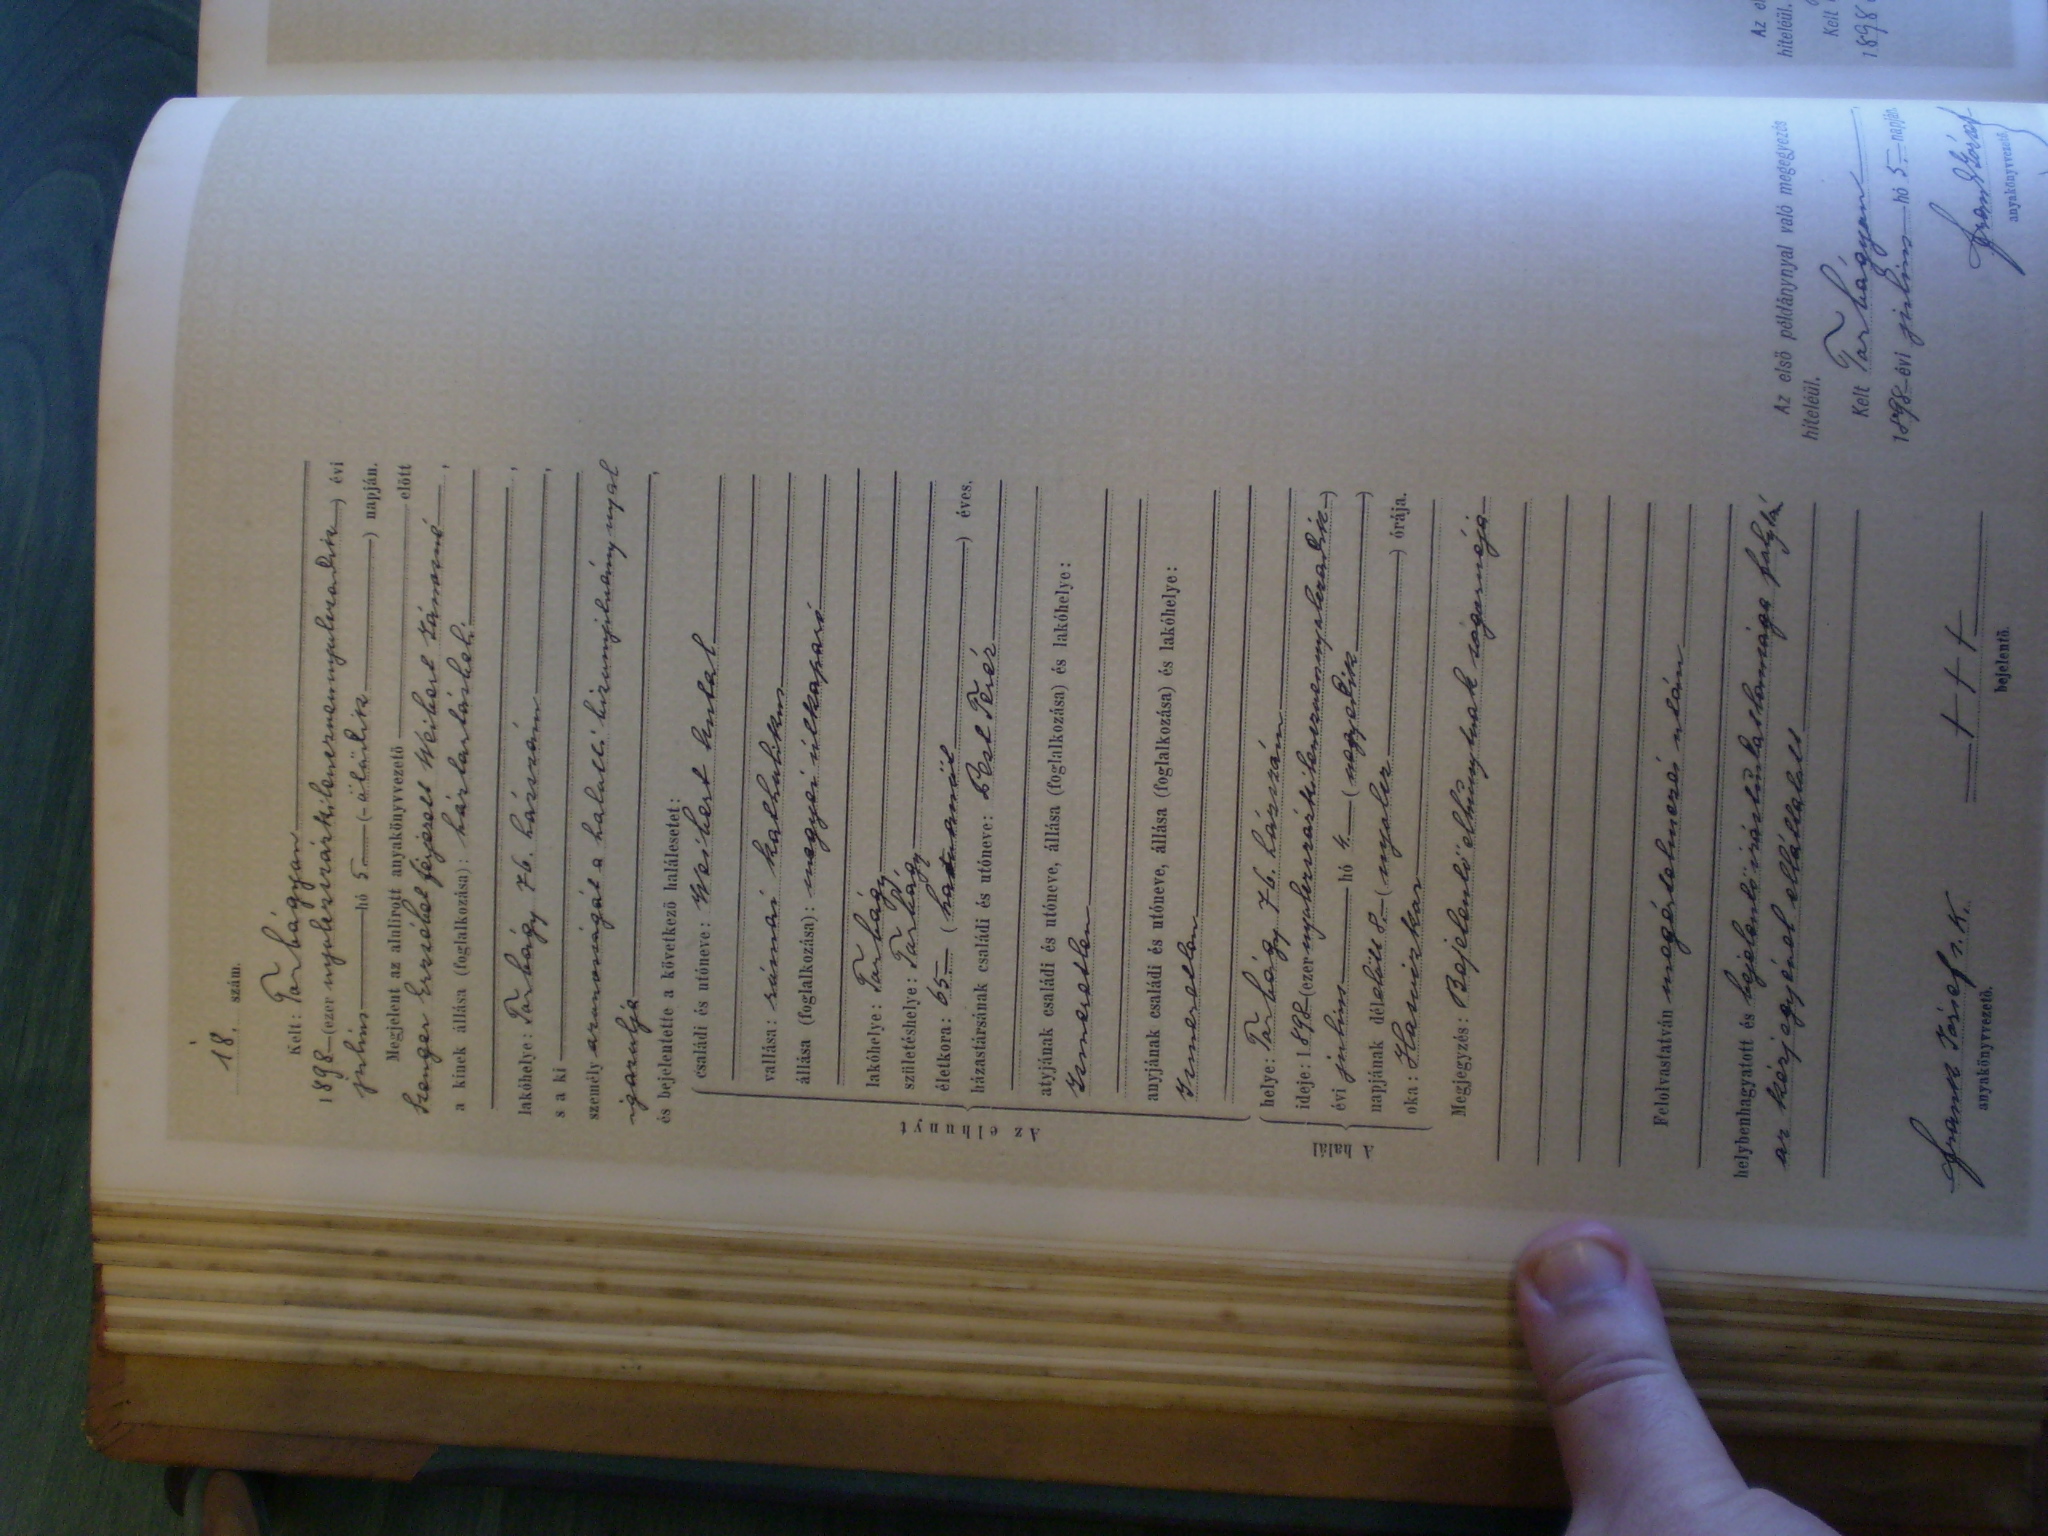 18. szám.
Kelt: Tarbágyan
1898 (ezer nyolczszázkilenczvennyolczadik) évi
julius hó 5. (ötödik) napján.
Megjelent az alulirott anyakönyvvezető előtt
Erzsébet férjezett Weikert Támásné,
a kinek állása (foglalkozása): háztartásbeli
lakóhelye: Tarbágy 76. házszám,
s a ki
személy azonosságát a halotti bizonyitványnyal
igazolja,
és bejelentette a következő halálesetet:
Az elhunyt
családi és utóneve: Weikert Antal
vallása: római katholikus
állása (foglalkozása): megyei útkaparó
lakóhelye: Tarbágy
születéshelye: Tarbágy
életkora: 65 (hatvanöt) éves.
házastársának családi és utóneve: Teréz
atyjának családi és utóneve, állása (foglalkozása) és lakóhelye:
Ismeretlen
anyjának családi és utóneve, állása (foglalkozása) és lakóhelye:
Ismeretlen
A halál
helye: Tarbágy 76. házszám
ideje: 1898 (ezer nyolczszázkilenczvennyolczadik)
évi julius hó 4. (negyedik)
napjának délelőtt 8 (nyolcz) órája.
oka:
Megjegyzés: Bejelentő elhúnytnak sógornője
Felolvastatván megértelmezés után
helybenhagyatott és bejelentő irástudatlansága folytán
az kézjegyével elláttatott
Frank József s. k. + + +
anyakönyvvezető. bejelentő.
Az első példánynyal való megegyezés
hiteléül.
Kelt Tarbágyan,
1898 évi julius hó 5. napján
Frank József
anyakönyvvezető.
Az el
hiteléül.
Kelt
1898